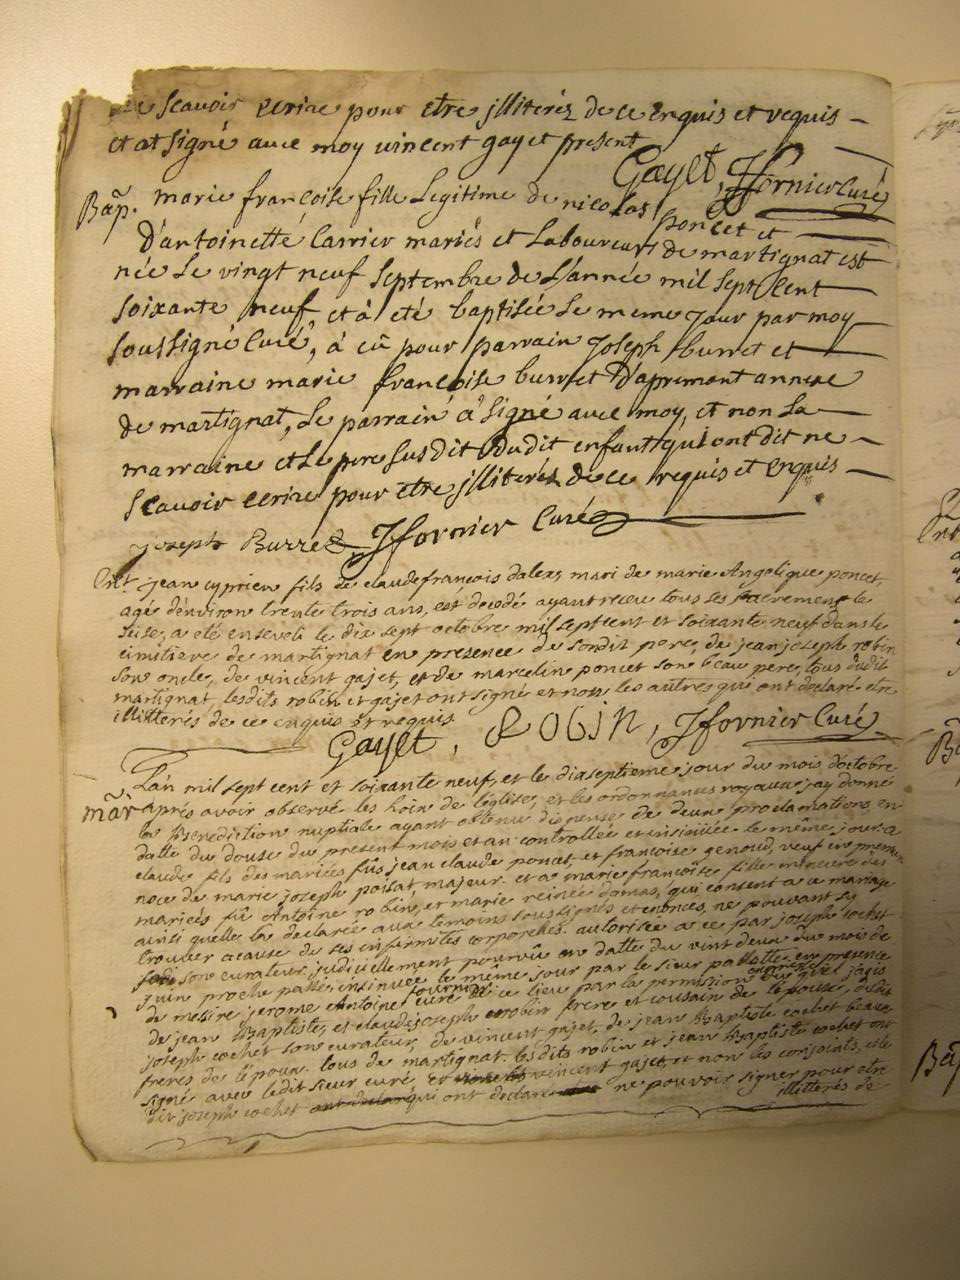 Scavoir ecrire pour etre jlliterés de ce enquis et requis –
et at signé avec moy vincent gayet present
Gayet, JJfornier Curé
Bap. marie françoise fille Legitime de nicolas poncet et
D'antoinette Carrier mariés et Laboureurs de martignat est
née Le vingt neuf septembre de L'année mil sept Cent
soixante neuf, et à été baptisée Le meme jour par moy
soussigné Curé, à eû pour parrain Joseph burret et
marraine marie françoise burret D'apremont annexe
de martignat, Le parrain à signé avec moy, et non La
marraine et Le pere susdit Dudit enfant qui ont dit ne
Scavoir ecrire pour être jlliterés de ce requis et enquis
joseph Burret JJfornier Curé
Ent. jean cyprien fils de claude françois dalex, mari de marie Angelique poncet,
agé d'environ trente trois ans, est decedé ayant receu tous ses sacrements le
seize, a eté enseveli le dix sept octobre mil sept cent et soixante neuf dans le
cimetiere de martignat en presence de sondit pere, de jean joseph robin
son oncle, de vincent gajet, et de marcelin poncet son beau pere, tous dudit
martignat, lesdits robin et gajet ont signé et non les autres qui ont declaré etre
illitterés de ce enquis et requis
Gayet, ROBIN, JJfornier Curé
L'an mil sept cent et soixante neuf, et le dixseptieme jour du mois d'octobre
mar. aprés avoir observé les loix de l'église, et les ordonnances royaux, jay donné
la Benediction nuptiale ayant obtenu dispense de deux proclamations en
datte du douze du present mois et an controllée et insinuée le même jour a
claude fils des mariés fûs jean claude poncet, et françoise genoud, veuf en premiere
noce de marie joseph poitat, majeur. et a marie françoise fille mineure des
mariés fû Antoine robin, et marie reinée domas, qui consent a ce mariage
ainsi quelle la declaré aux temoins soussignés et enoncés, ne pouvant sy
trouver acause de ses infirmités corporelles. autorisée a ce par joseph cochet
son curateur judiciellement pourvû en datte du vint deux du mois de
juin proche passé, insinuée le même jour par le sieur pallotte. en presence
de messire jerome Antoine tournier curé de ce lieu par la permission expresse
de jean Baptiste, et claude joseph robin frere et cousain de l'epouse, dudit
joseph cochet son curateur, de vincent gajet, de jean Baptiste cochet beaux
freres de l'epoux. tous de martignat. lesdits robin et jean Baptiste cochet ont
signé avec ledit sieur curé, et vincent gajet, et non les conjoints, et le
dit joseph cochet qui ont declaré ne pouvoir signer pour etre
illitterés de